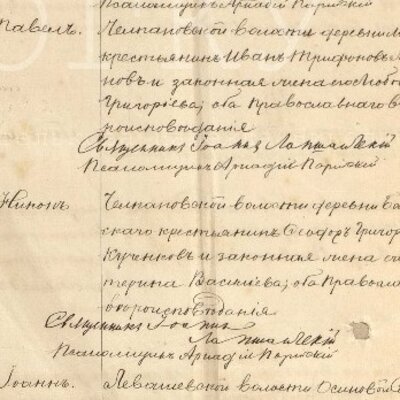 Псаломщик Аркадій Парійскій
Павелъ.
Челпановской волости деревни
крестьянинъ Иванъ Трифоновъ
новъ и законная жена его Любовь
Григоріева; оба Православнаго
вѣроисповѣданія
Священникъ Іоаннъ
Псаломщикъ Аркадій Парійскій
Никонъ.
Челпановской волости деревни
скаго крестьянинъ Ѳеодоръ Григор
Кученковъ и законная жена его
терина Василіева; оба Право
вѣроисповѣданія
Священникъ Іоаннъ
Псаломщикъ Аркадій Парійскій
Іоаннъ.
Левашевской волости Осиновой